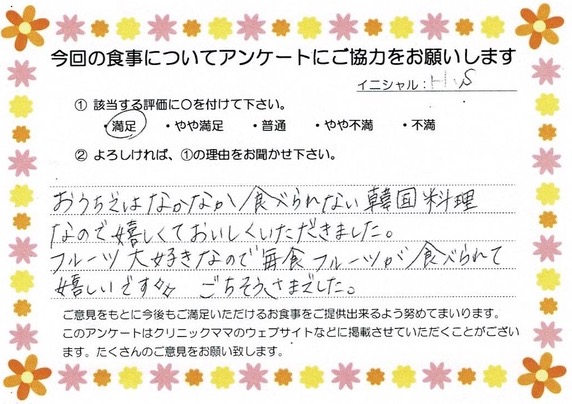 今回の食事についてアンケートにご協力をお願いします
イニシャル：H.S
① 該当する評価に○を付けて下さい。
・満足 ・やや満足 ・普通 ・やや不満 ・不満
② よろしければ、①の理由をお聞かせ下さい。
おうちではなかなか食べられない韓国料理
なので嬉しくておいしくいただきました。
フルーツ大好きなので毎食フルーツが食べられて
嬉しいです♪♪ ごちそうさまでした。
ご意見をもとに今後もご満足いただけるお食事をご提供出来るよう努めてまいります。
このアンケートはクリニックママのウェブサイトなどに掲載させていただくことがござい
ます。たくさんのご意見をお願い致します。